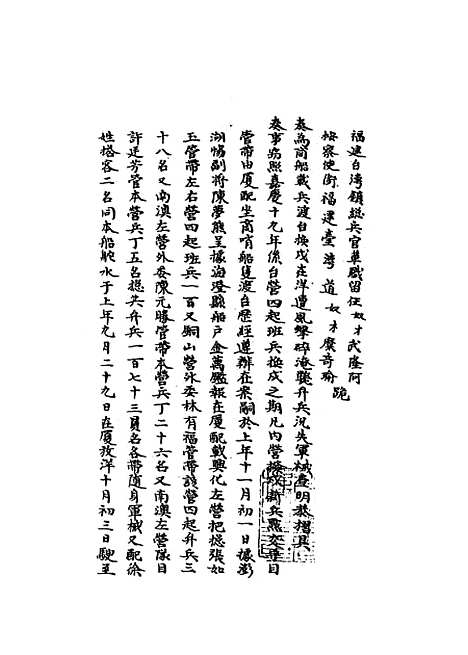 福建台湾鎮總兵官革職留任奴才武隆阿
按察使銜福建臺灣道奴才糜奇瑜
跪
奏為商船載兵渡台換戍在洋遭風擊碎淹斃弁兵沉失軍械查明恭摺具
奏事竊照嘉慶十九年係台營四起班兵換戍之期凡内營換戍新兵點交弁目
管帶由厦配坐商哨船隻渡台歷經遵辦在案嗣於上年十一月初一日據澎
湖協副將陳夢熊呈據海澄縣船户金萬鑑報在厦配載興化左營把總張如
玉管帶左右營四起班兵一百又銅山營外委林有福管帶該營四起弁兵三
十八名又南澳左營外委陳元勝管帶本營兵丁二十六名又南澳左營隊目
許廷芳管本營兵丁五名總共弁兵一百七十三員名各帶隨身軍械又配徐
姓搭客二名同本船舵水于上年九月二十九日在厦放洋十月初三日駛至